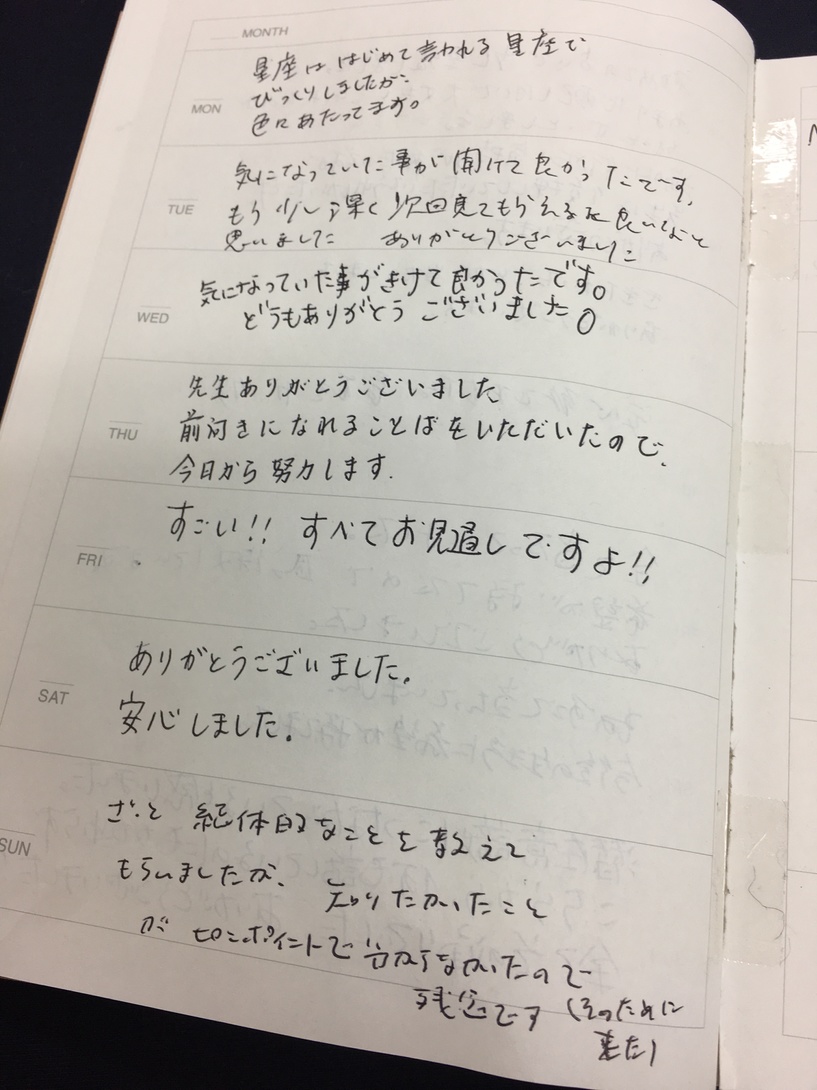 MONTH
星座は はじめて言われる 星座で
びっくりしましたが、
MON
色々あたってます。
気になっていた事が聞けて良かったです。
TUE
もう少し早く次回見てもらえると良いなと
思いました ありがとうございました
気になっていた事がきけて良かったです。
WED
どうもありがとうございました。
先生ありがとうございました
THU
前向きになれることばをいただいたので、
今日から努力します.
すごい!! すべてお見通しですよ!!
FRI
ありがとうございました。
SAT
安心しました。
ざっと 総体的なことを教えて
SUN
もらいましたが、 知りたかったこと
が ピンポイントで分からなかったので
残念です (そのために
来た)